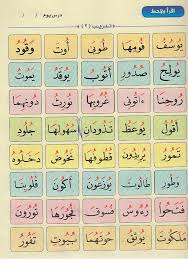 اقرأ ولاحظ
تدريب (٢)
يُوسُفَ قُومِهَا طُوبَىٰ أُوتَ وَقُودُ
يُولِجُ صُدُورِ أَتُوبُ يُوقَدُ يَمُوتُ
غُرُوبِهَا نُورِثُ دُونِهِمَا
أَقُولَ يُوعَظُ تَذُودَانِ سُهُولِهَا جُلُودِ
تَمُورُ يُوزَعُونَ قُطُوفُهَا نَخُوضُ دَخَلُوهُ
وَطُورِ طَالُوتَ يُورَعُونَ أَكُونَ قُلُوبِنَا
فَتَحُوا رُءُوسُ فَسُوقَ فُجُورَهَا تُورُونَ
مَلَكُوتُ يُوثِقُ حُوتَهُمَا بُيُوتِ تَفُورُ